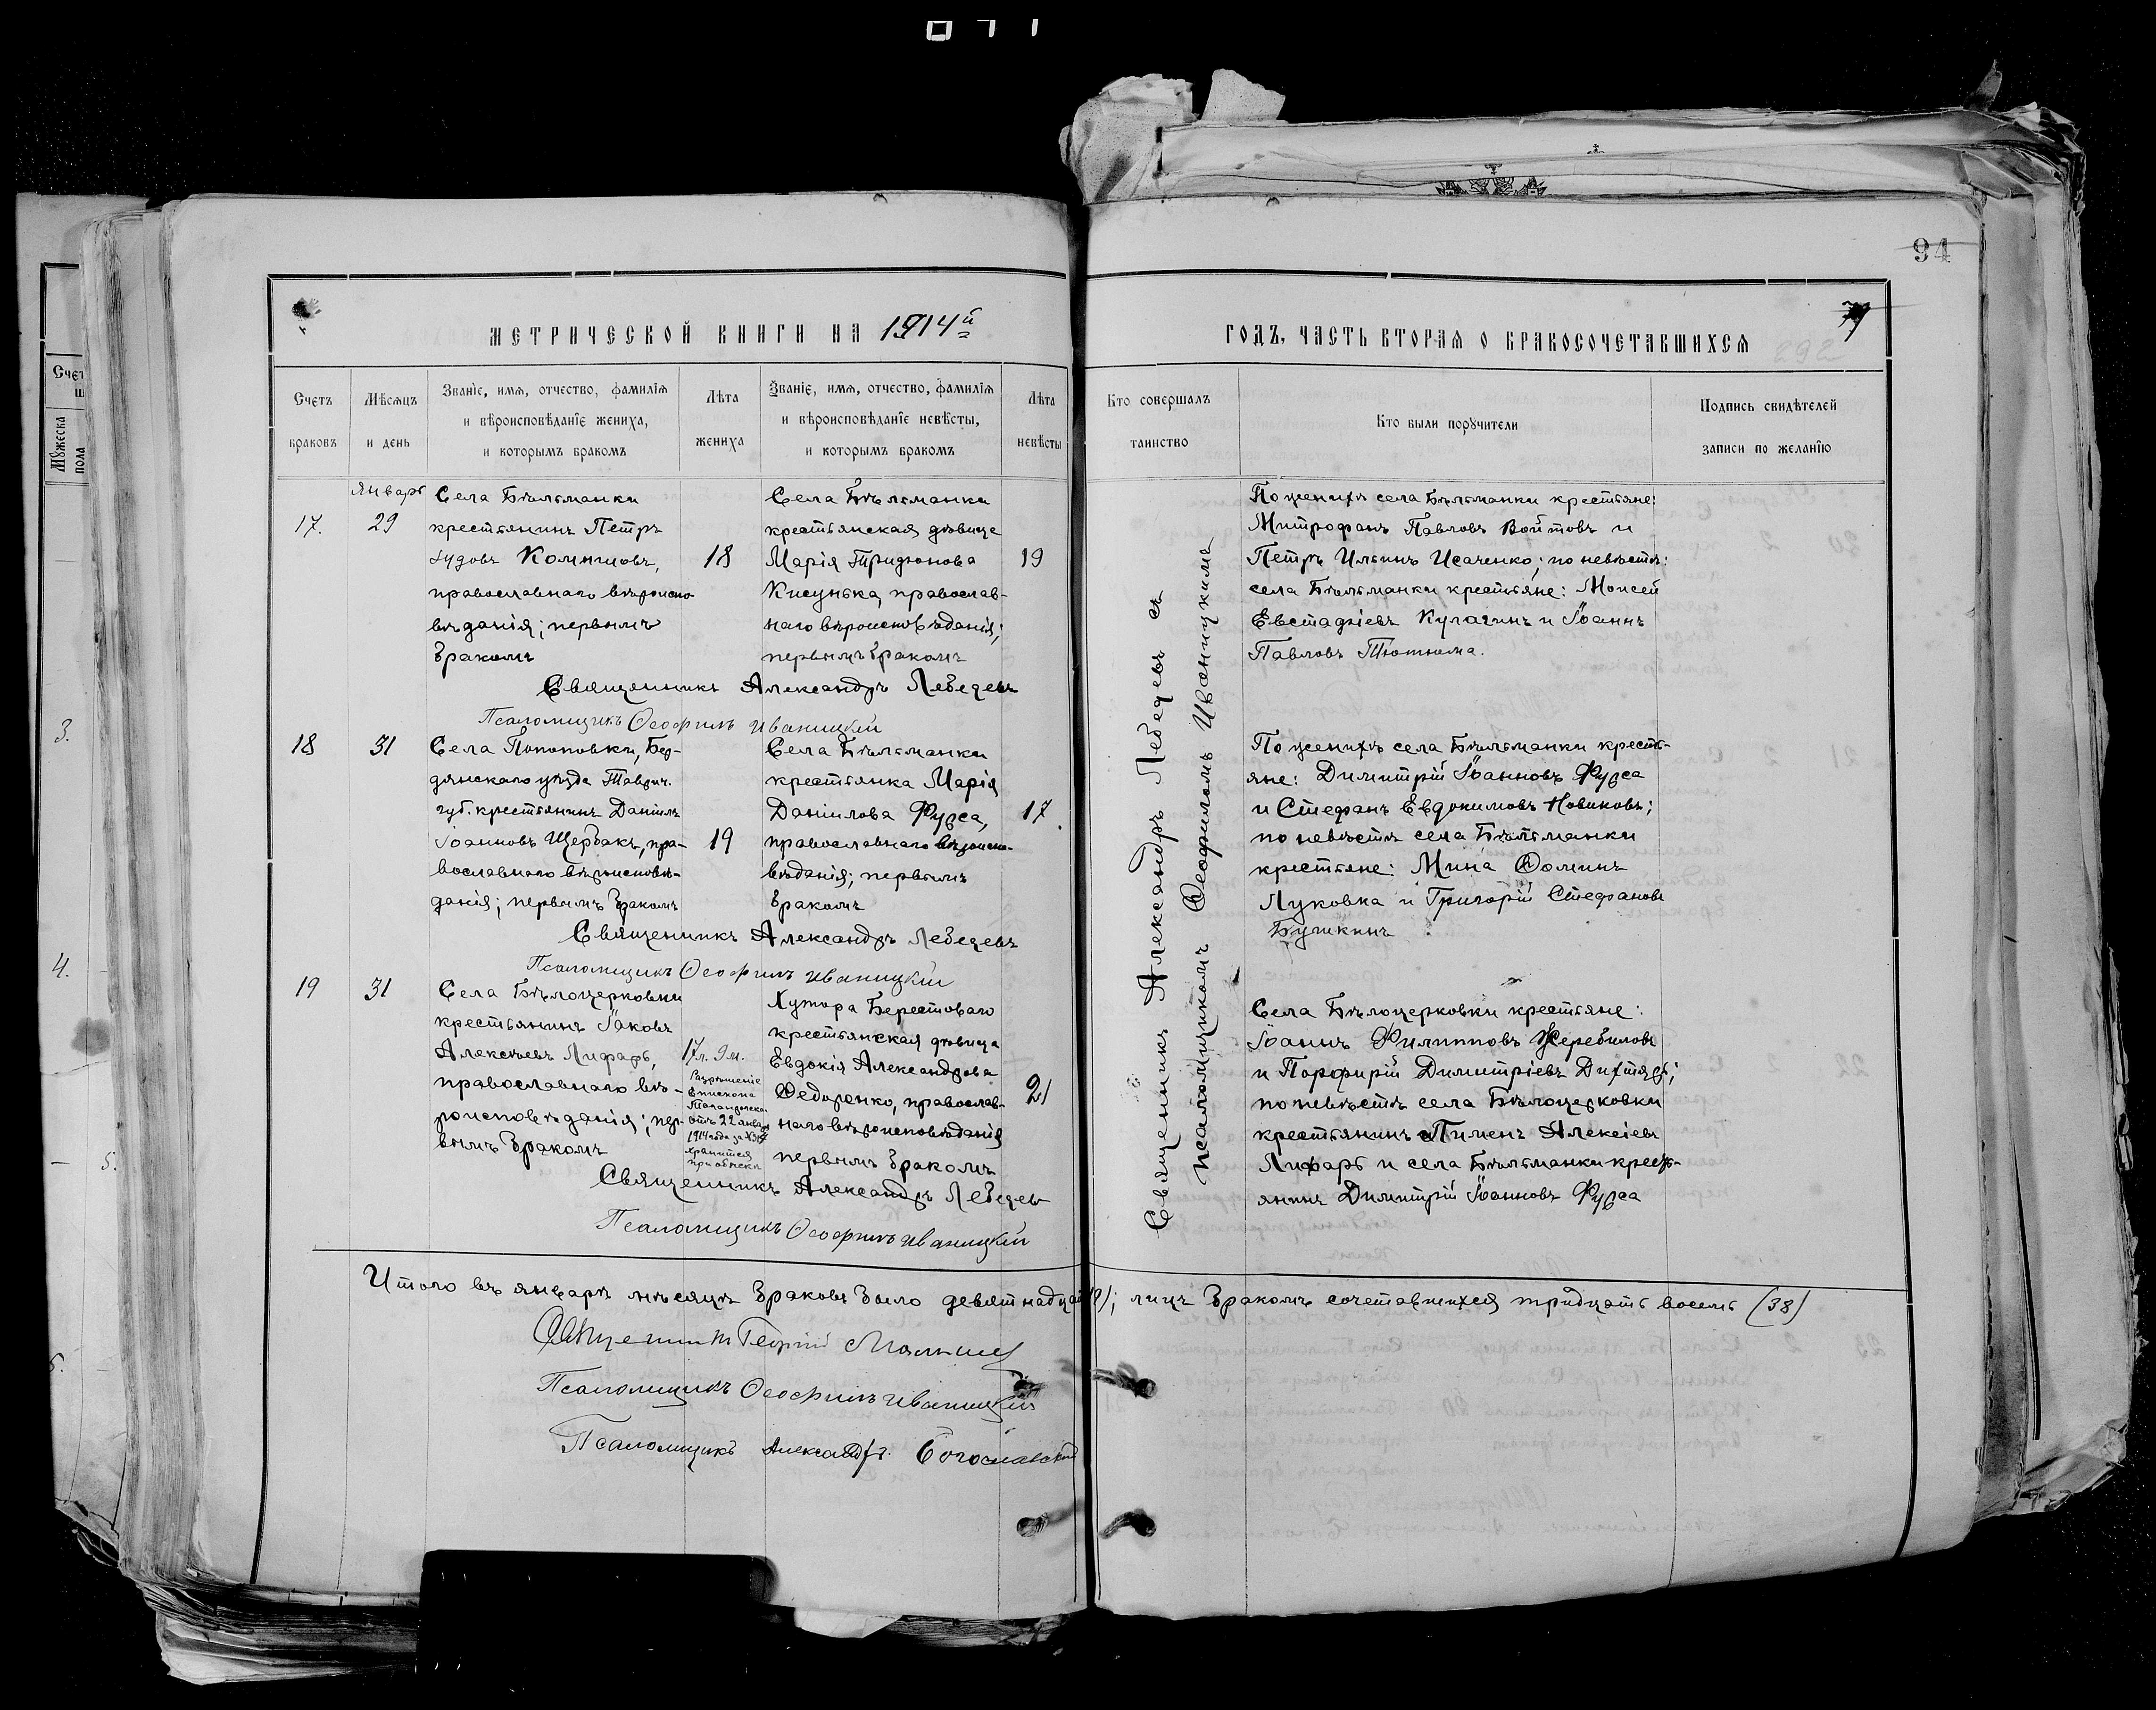 071
94
МЕТРИЧЕСКОЙ КНИГИ НА 1914й
ГОДЪ, ЧАСТЬ ВТОРАЯ О БРАКОСОЧЕТАВШИХСЯ
292
Счетъ браковъ
Мѣсяцъ и день
Званіе, имя, отчество, фамилія
и вѣроисповѣданіе жениха,
и которымъ бракомъ
Лѣта жениха
Званіе, имя, отчество, фамилія
и вѣроисповѣданіе невѣсты,
и которымъ бракомъ
Лѣта невѣсты
Кто совершалъ таинство
Кто были поручители
Подпись свидѣтелей
записи по желанію
17.
Январь
29
Села Бѣльманки
крестьянинъ Петръ
православнаго вѣроиспо-
вѣданія; первымъ
бракомъ
18
Села Бѣльманки
крестьянская дѣвица
Марія
православ-
наго вѣроисповѣданія;
первымъ бракомъ
19
Священникъ Александръ Лебедевъ
Псаломщикъ Ѳеофилъ Иваницкій
По женихѣ села Бѣльманки крестьяне:
Митрофанъ Павловъ Войтовъ и
Петръ Ильинъ Исаченко; по невѣстѣ:
села Бѣльманки крестьяне: Моисей
Евстафіевъ Кулагинъ и Іоаннъ
Павловъ
18
31
Села Поповки, Бер-
дянскаго уѣзда Таврич.
губ. крестьянинъ Даніилъ
Іоанновъ Щербакъ, пра-
вославнаго вѣроисповѣ-
данія; первымъ бракомъ
19
Села Бѣльманки
крестьянка Марія
Даніилова Фурса,
православнаго вѣроиспо-
вѣданія; первымъ
бракомъ
17
Священникъ Александръ Лебедевъ
Псаломщикъ Ѳеофилъ Иваницкій
По женихѣ села Бѣльманки кресть-
яне: Димитрій Іоанновъ Фурса
и Стефанъ Евдокимовъ Новиковъ;
по невѣстѣ села Бѣльманки
крестьяне: Мина Ѳоминъ
Луковка и Григорій Стефановъ
Бушкинъ
19
31
Села Бѣлоцерковки
крестьянинъ Іаковъ
Алексѣевъ Лифарь,
православнаго вѣ-
роисповѣданія; пер-
вымъ бракомъ
17 л. 9 м.
Разрѣшеніе
Епископа
отъ 22 января
1914 года за №
хранится
при обыскѣ
Хутора Берестоваго
крестьянская дѣвица
Евдокія Александрова
Ѳедоренко, православ-
наго вѣроисповѣданія
первымъ бракомъ
21
Священникъ Александръ Лебедевъ
Псаломщикъ Ѳеофилъ Иваницкій
Села Бѣлоцерковки крестьяне:
Іоаннъ Филипповъ Жеребиловъ
и Порфирій Димитріевъ Дихтярь;
по невѣстѣ села Бѣлоцерковки
крестьянинъ Пименъ Алексіевъ
Лифарь и села Бѣльманки кресть-
янинъ Димитрій Іоанновъ Фурса
Священникъ Александръ Лебедевъ съ
псаломщикомъ Ѳеофиломъ Иваницкимъ
Итого въ январѣ мѣсяцѣ браковъ было девятнадцать (19); лицъ бракомъ сочетавшихся тридцать восемь (38)
Священникъ Георгій
Псаломщикъ Ѳеофилъ Иваницкій
Псаломщикъ Александръ Богославскій
Счет
Мужеска
пола
3.
4.
5.